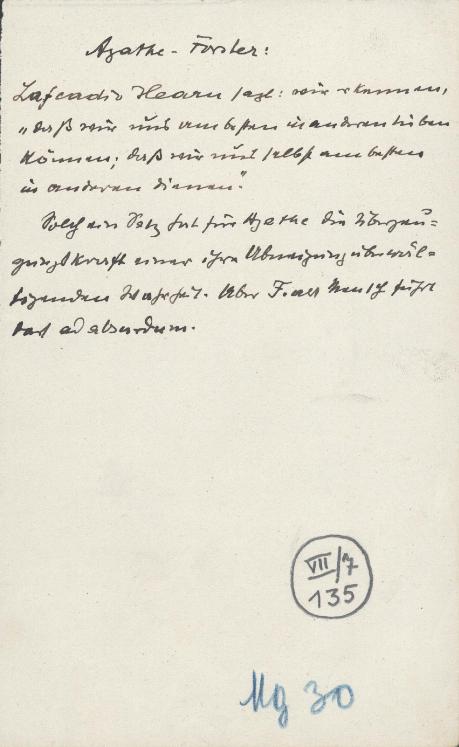 Agathe - Förster:
Lafcadio Hearn sagt: wir erkennen,
„daß wir uns am besten in anderen lieben
können; daß wir uns selbst am besten
in anderen dienen".
Solch ein Satz hat für Agathe die Überzeu=
gungskraft einer ihre Abneigung überwäl=
tigenden Wahrheit. Aber F. als Mensch führt
das ad absurdum.
VII/7
135
Mg 30